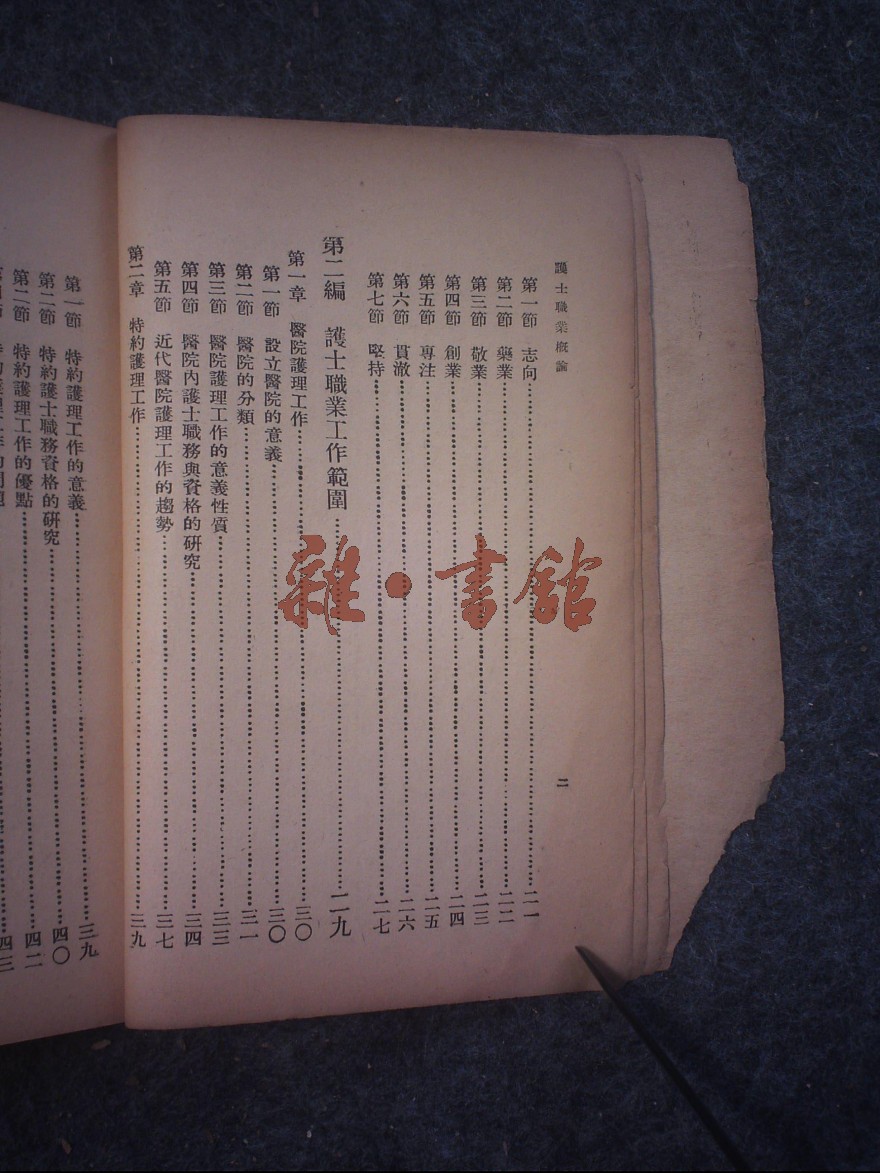 護士職業概論
二
第一節 志向……二一
第二節 樂業……二二
第三節 敬業……二三
第四節 創業……二四
第五節 專注……二五
第六節 貫澈……二六
第七節 堅持……二七
第二編 護士職業工作範圍……二九
第一章 醫院護理工作……三〇
第一節 設立醫院的意義……三〇
第二節 醫院的分類……三一
第三節 醫院護理工作的意義性質……三三
第四節 醫院內護士職務與資格的研究……三四
第五節 近代醫院護理工作的趨勢……三七
第二章 特約護理工作……三九
第一節 特約護理工作的意義……三九
第二節 特約護士職務資格的研究……四〇
第二節 特約護理工作的優點……四二
雜·書館